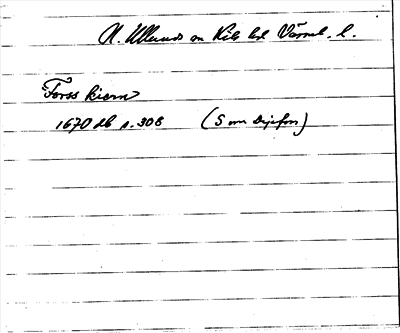 N. Ullerud sn Kils hd Värml. l.
Forss kiern
1670 db s. 308 (S om Dyefors)